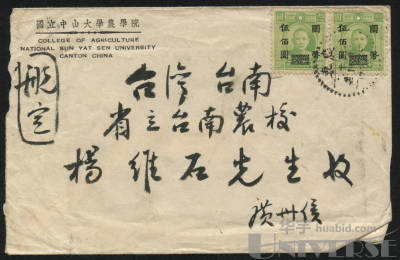 國立中山大學農學院
COLLEGE OF AGRICULTURE
NATIONAL SUN YAT SEN UNIVERSITY
CANTON CHINA
國幣
伍佰圓
國幣
伍佰圓
航空
台灣 台南
省立台南農校
楊維石先生收
廣州侯
华宇 huabid.com
UNIVERSE